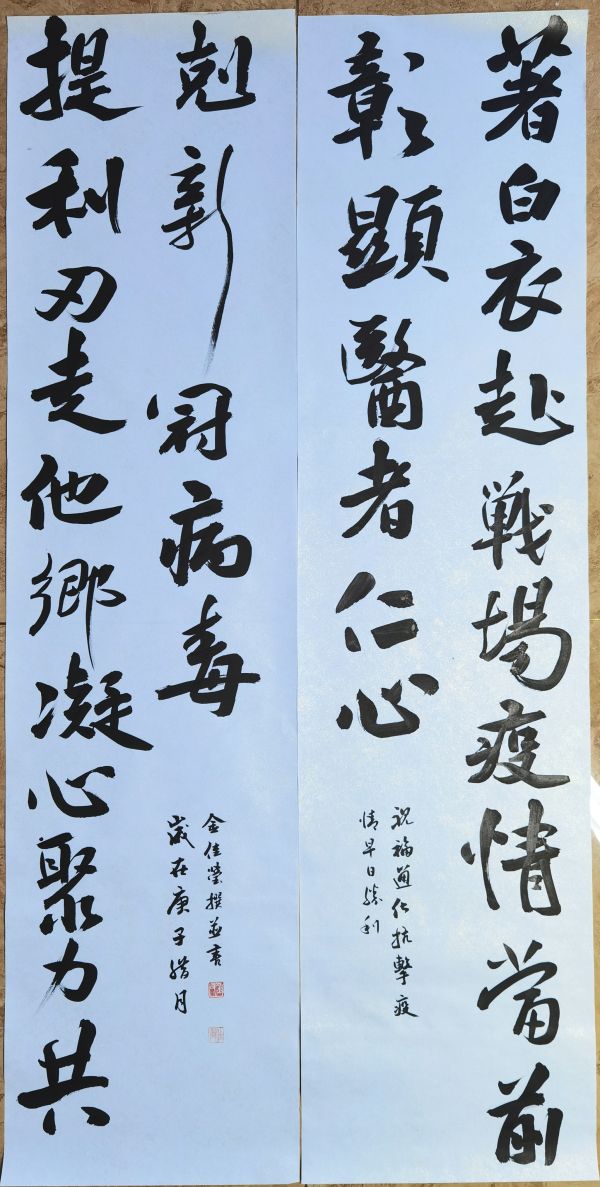 著白衣赴戦場疫情當前
彰顯醫者仁心
祝福通化抗擊疫
情早日勝利
提利刃走他鄉凝心聚力共
剋新冠病毒
金佳瑩撰並書
歲在庚子腊月